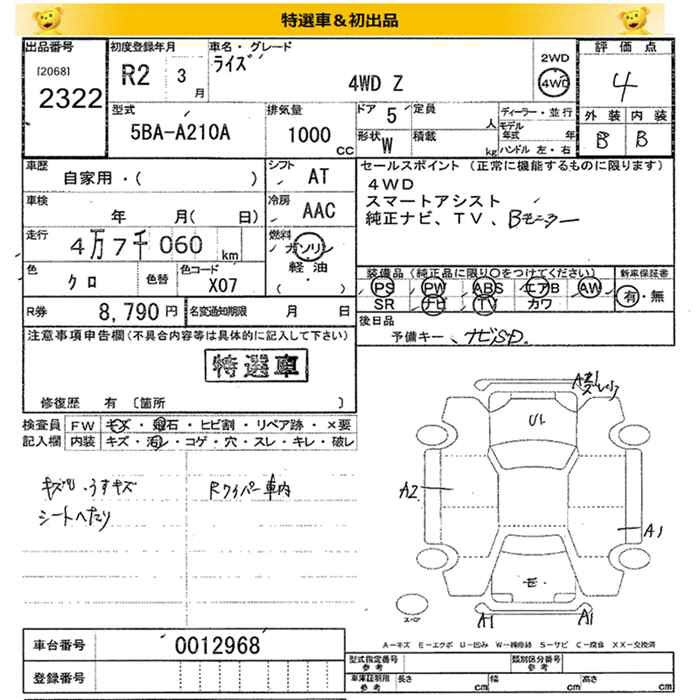 特選車＆初出品
出品番号
[2068]
2322
初度登録年月
R2 3月
車名・グレード
ライズ
4WD Z
2WD
4WD
評価点
4
外装 内装
B B
型式
5BA-A210A
排気量
1000 CC
ドア 5
定員 人
形状 W
積載 kg
ディーラー・並行
モデル年式 年
ハンドル 左・右
車歴
自家用・( )
シフト
AT
車検
年 月( 日)
冷房
AAC
走行
4万7千060 km
燃料
ガソリン
軽・油
( )
色
クロ
色替
色コード
X07
セールスポイント (正常に機能するものに限ります)
4WD
スマートアシスト
純正ナビ、TV、Bモニター
装備品 (純正品に限り○をつけてください)
PS PW ABS エアB AW
SR ナビ TV カワ
新車保証書
有・無
R券
8,790円
名変通知期限 月 日
後日品
予備キー、ナビSD.
注意事項申告欄 (不具合内容等は具体的に記入して下さい)
特選車
修復歴 有 〔箇所 〕
検査員 FW キズ・飛石・ヒビ割・リペア跡・×要
記入欄 内装 キズ・汚レ・コゲ・穴・スレ・キレ・破レ
キズ小 うすキズ
シートへたり
Rワイパー車内
A2
A1
A1
A1
スペア
A-キズ E-エクボ U-凹み W-補修跡 S-サビ C-腐食 XX-交換済
車台番号
0012968
登録番号
型式指定番号 参考
類別区分番号 参考
車庫証明用 参考
長さ cm
幅 cm
高さ cm